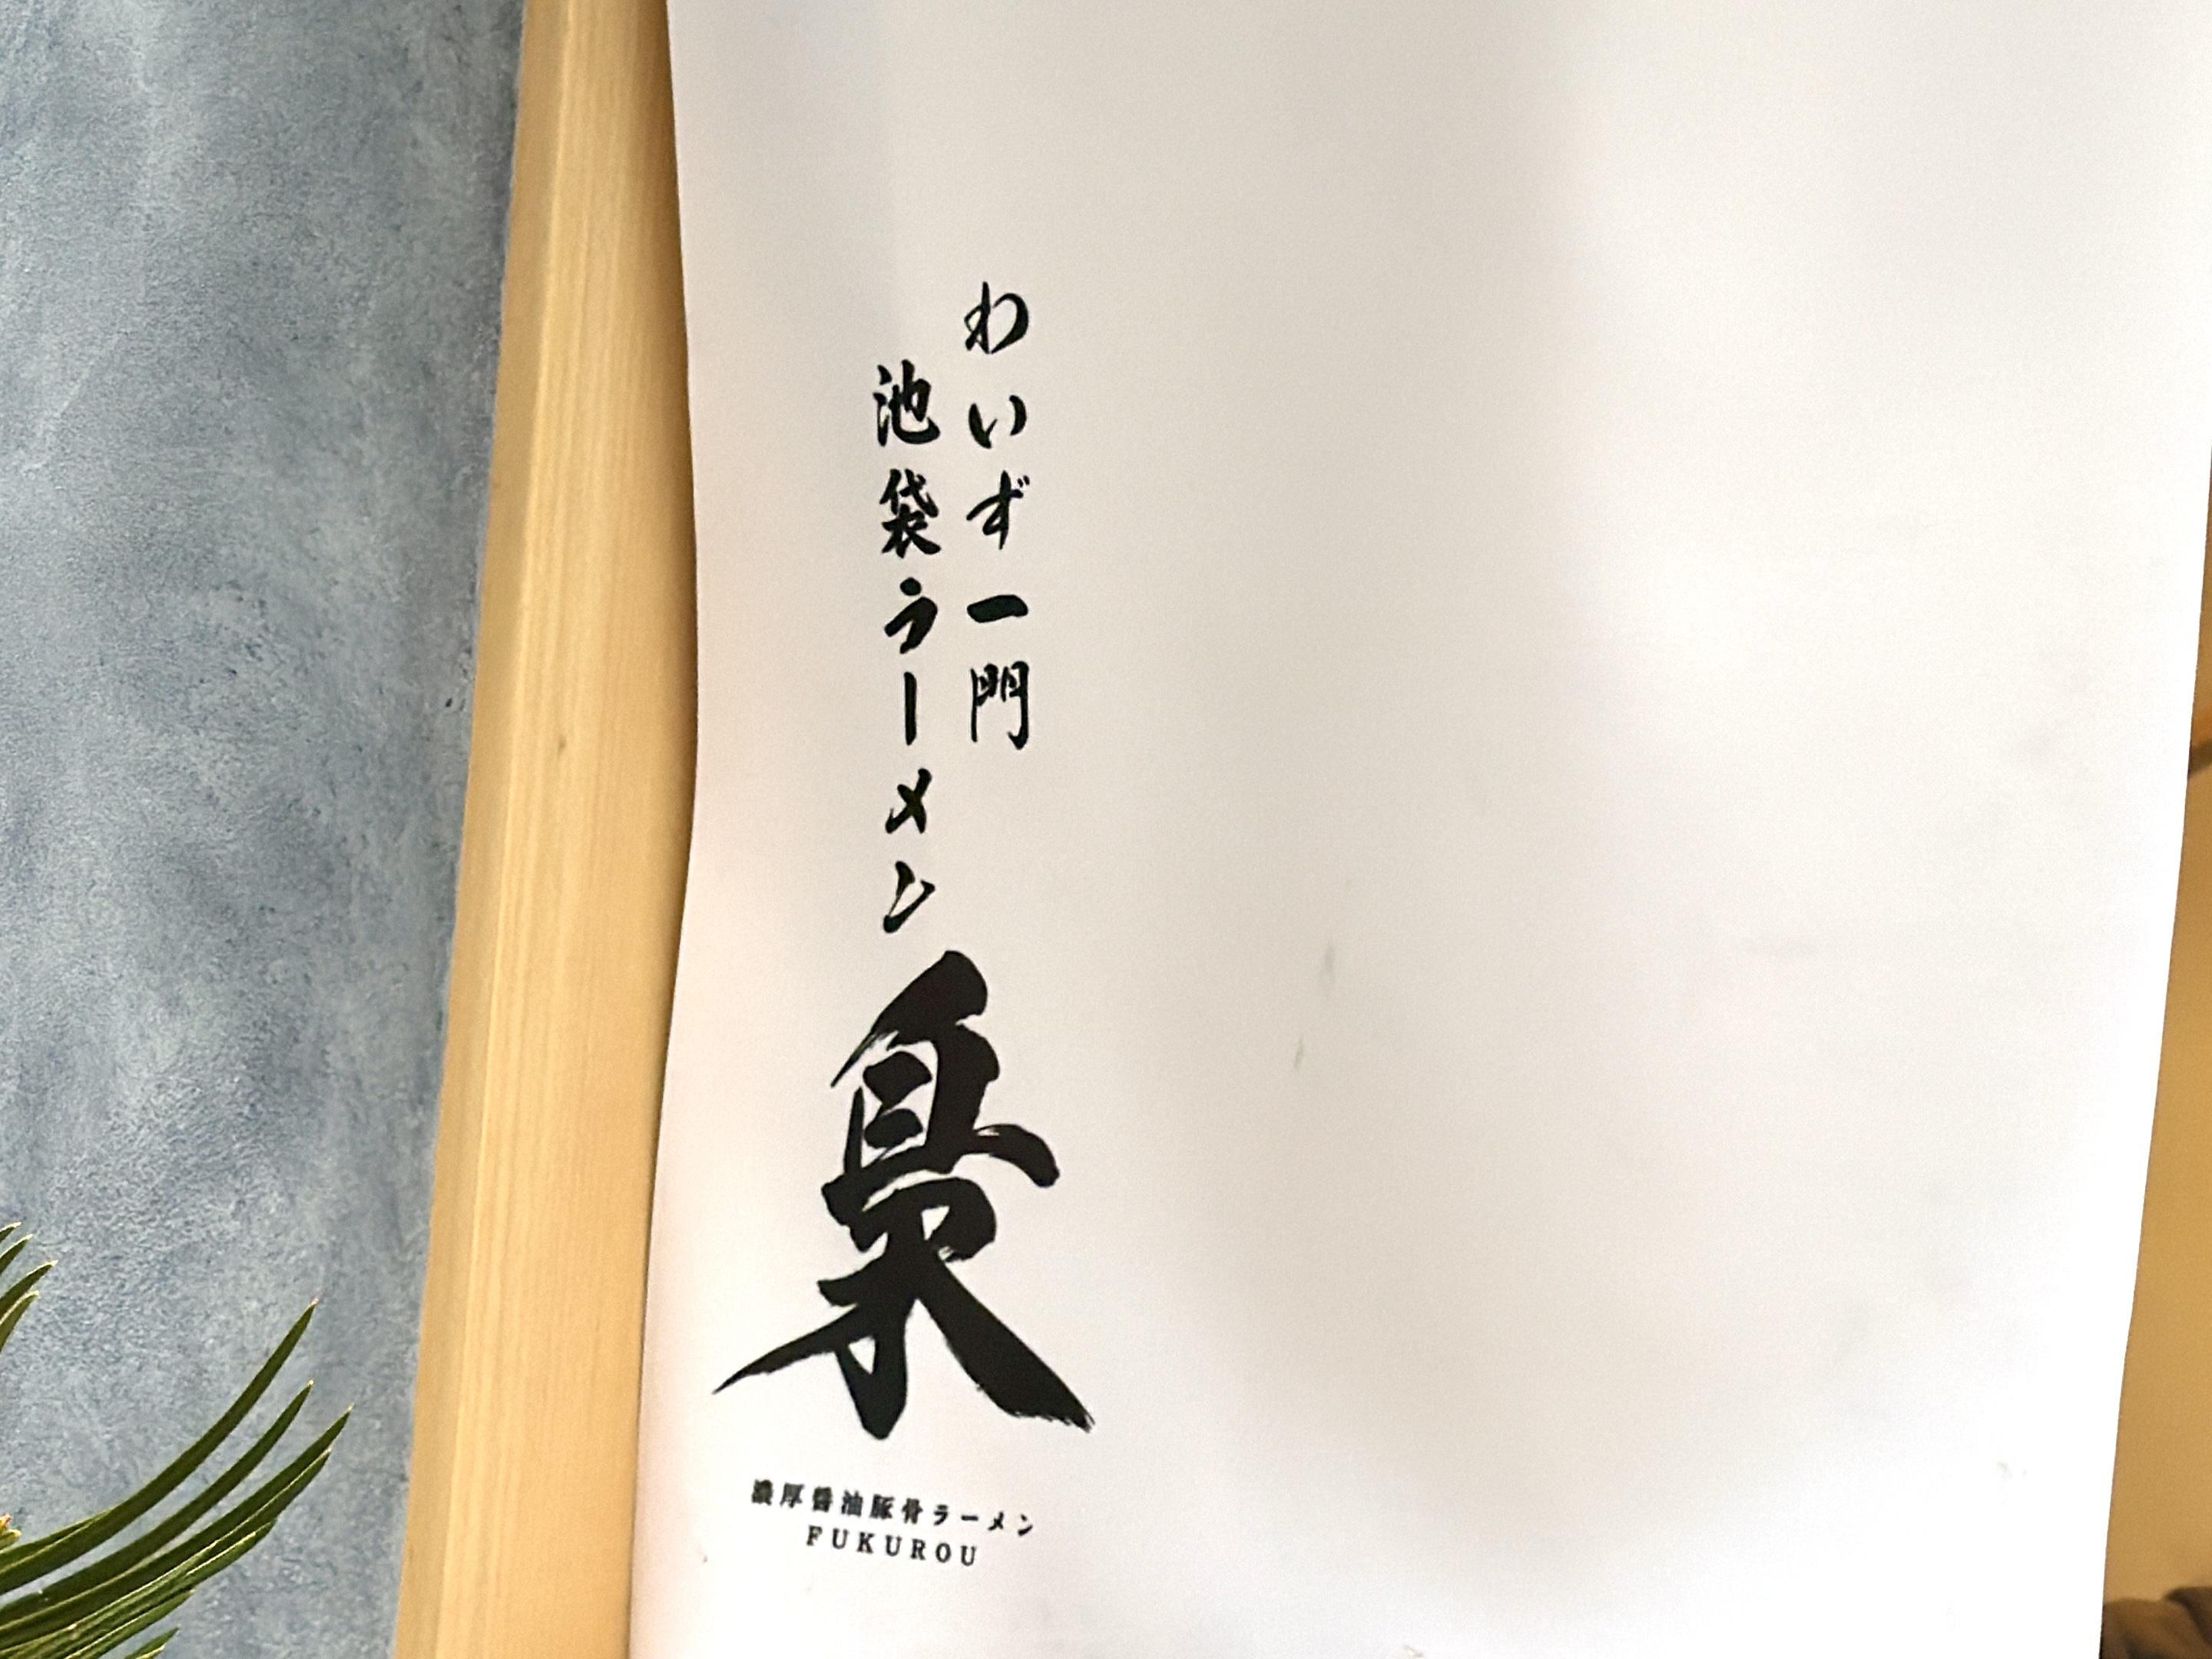 わいず一門
池袋ラーメン
梟
濃厚醤油豚骨ラーメン
FUKUROU